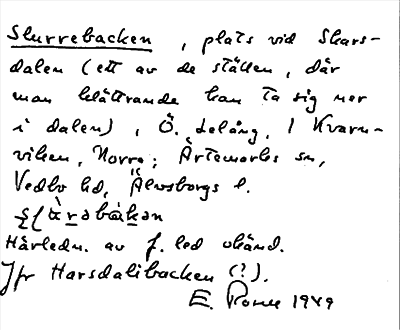 Slurrebacken, plats vid Skars-
dalen (ett av de ställen, där
man klättrande kan ta sig ner
i dalen), Ö. Lelång, i Kvarn-
viken, Norra; Ärtemarks sn,
Vedbo hd, Älvsborgs l.
Härledn. av f. led okänd.
Jfr Harsdalibacken (?).
E. 1949